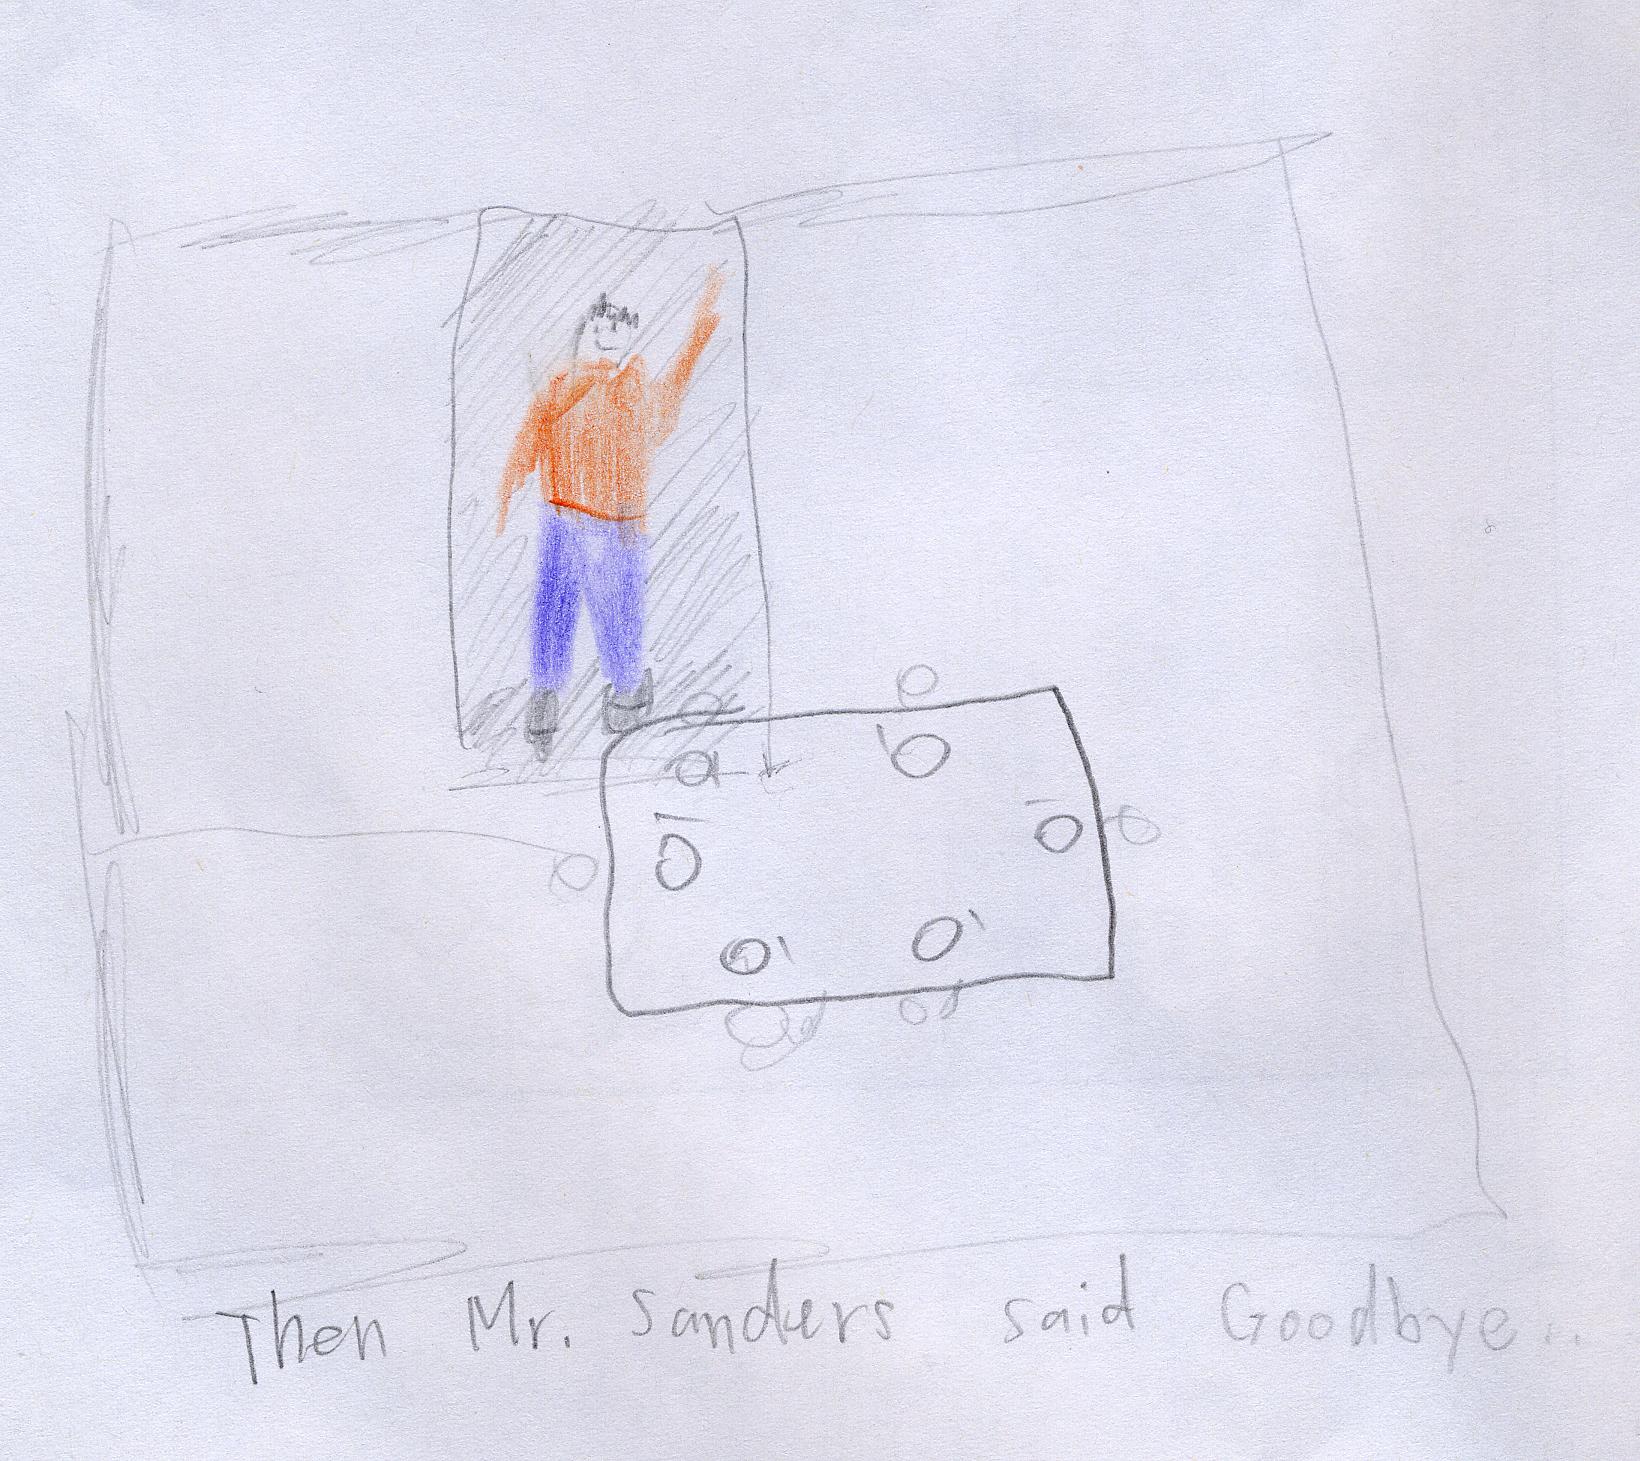 Then Mr. Sanders said Goodbye...